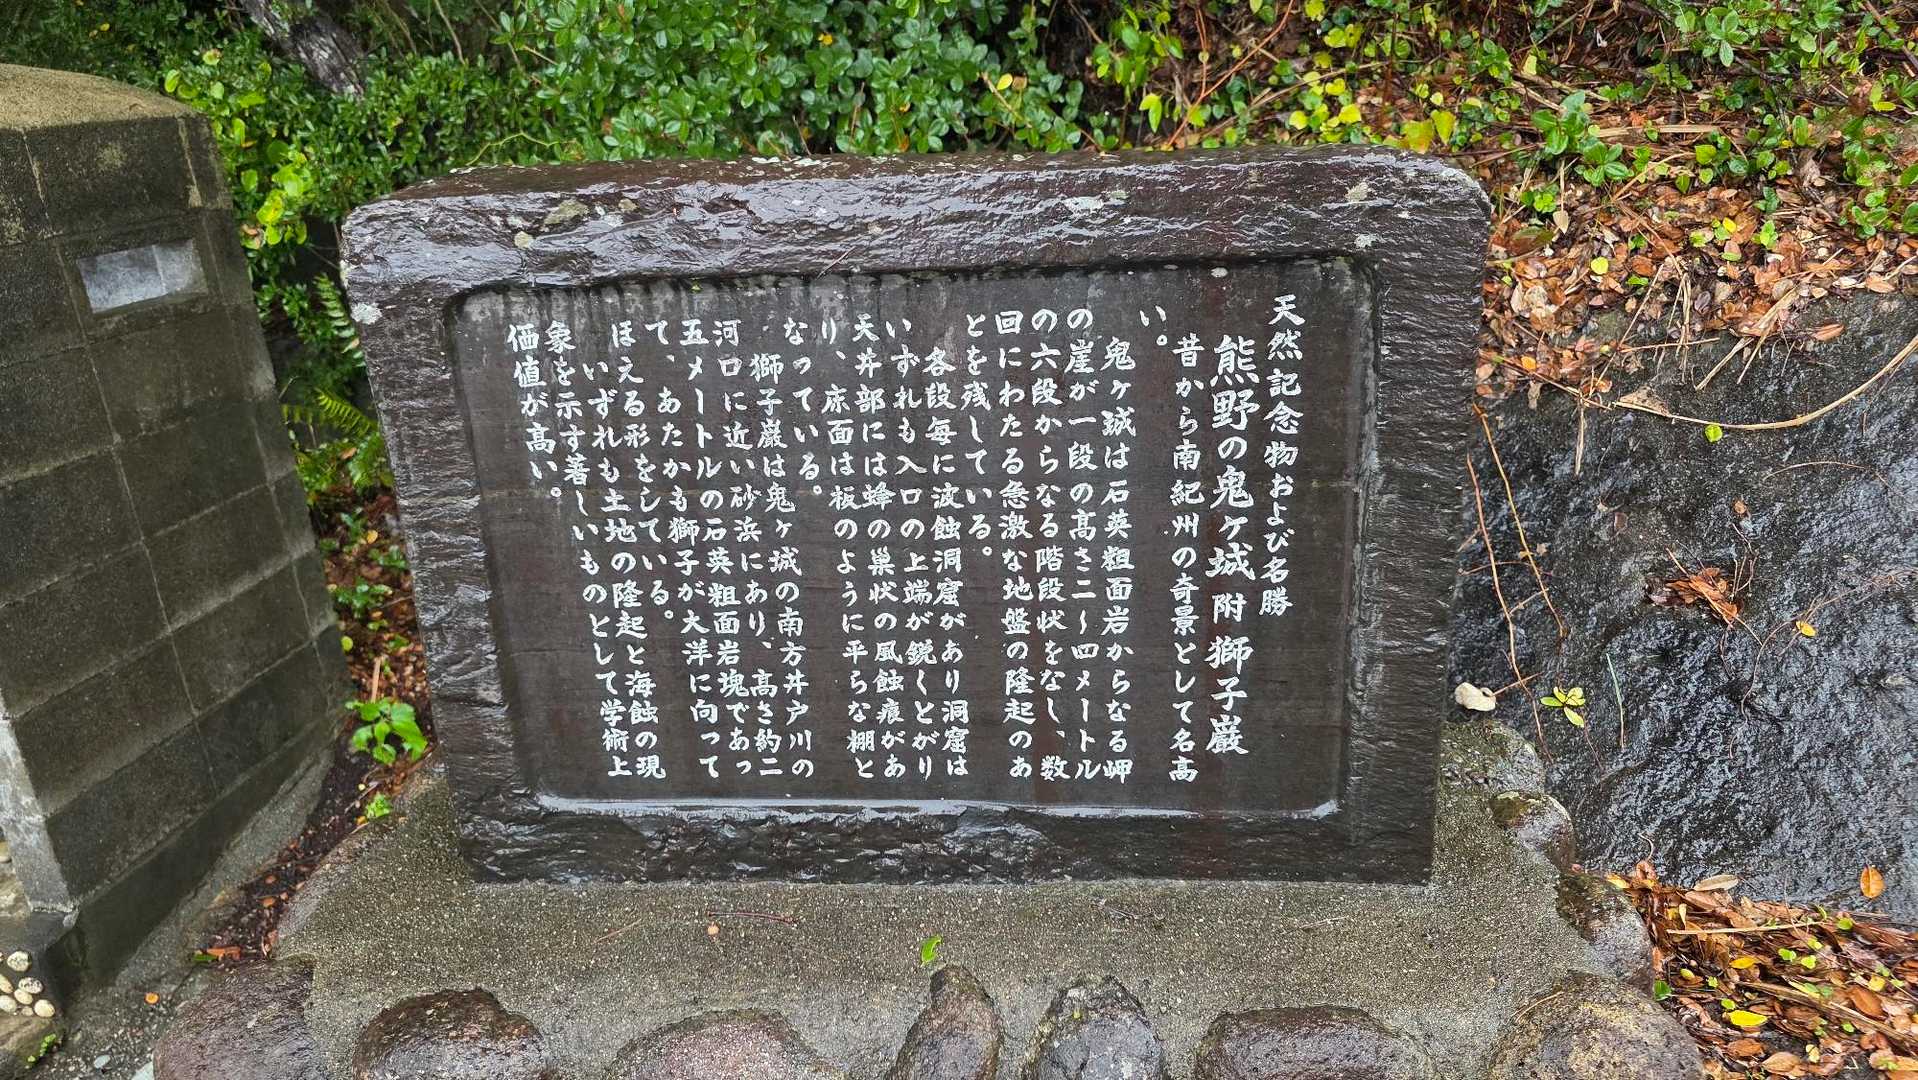 天然記念物および名勝
熊野の鬼ヶ城 附 獅子巌
昔から南紀州の奇景として名高
い。
鬼ヶ城は石英粗面岩からなる岬
の崖が一段の高さ二〜四メートル
の六段からなる階段状をなし、数
回にわたる急激な地盤の隆起のあ
とを残している。
各段毎に波蝕洞窟があり洞窟は
いずれも入口の上端が鋭くとがり
天井部には蜂の巣状の風蝕痕があ
り、床面は板のように平らな棚と
なっている。
獅子巌は鬼ヶ城の南方井戸川の
河口に近い砂浜にあり、高さ約二
五メートルの石英粗面岩塊であっ
て、あたかも獅子が大洋に向って
ほえる形をしている。
いずれも土地の隆起と海蝕の現
象を示す著しいものとして学術上
価値が高い。